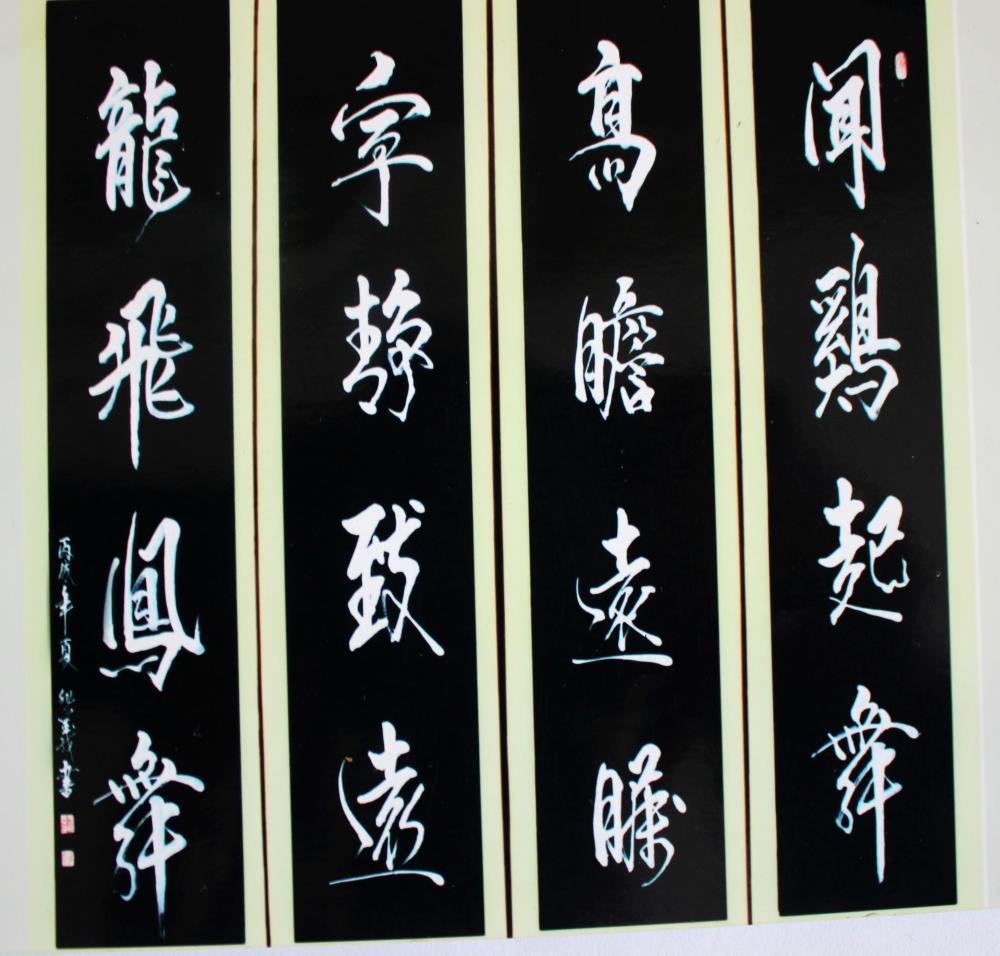 聞鷄起舞
髙瞻遠矚
寧静致遠
龍飛鳳舞
丙戌年夏 書